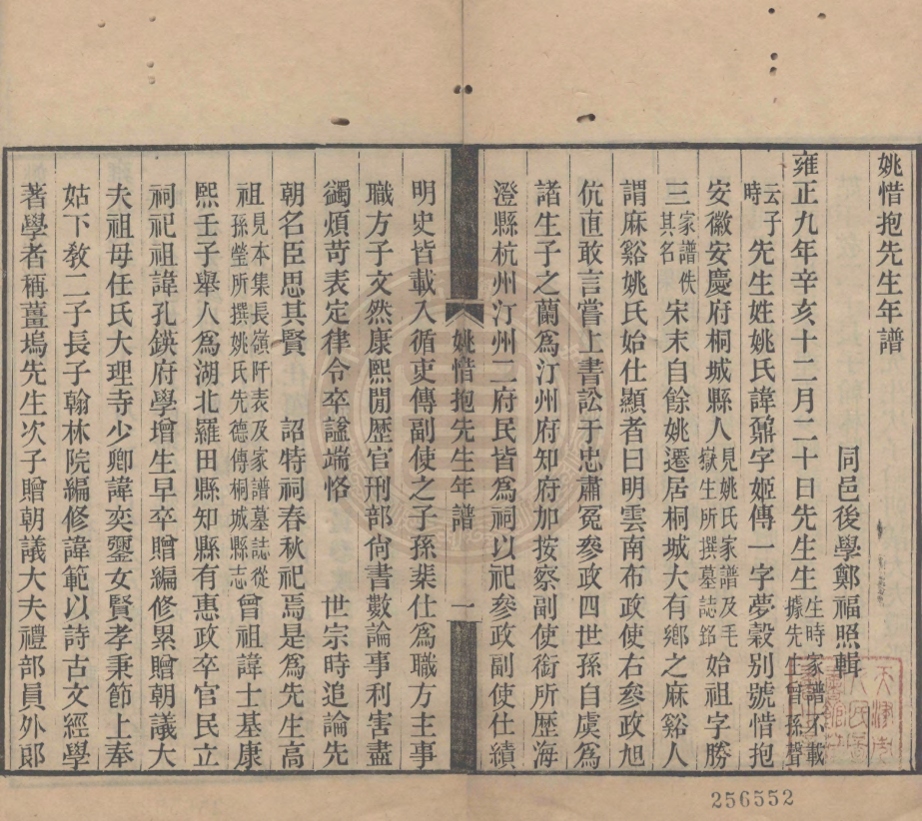 姚惜抱先生年譜
同邑後學鄭福照輯
雍正九年辛亥十二月二十日先生生生時家譜不載據先生曾孫聲
云子時先生姓姚氏諱鼐字姬傳一字夢穀别號惜抱
安徽安慶府桐城縣人見姚氏家譜及毛嶽生所撰墓誌銘始祖字勝
三家譜佚其名宋末自餘姚遷居桐城大有鄉之麻谿人
謂麻谿姚氏始仕顯者曰明雲南布政使右參政旭
伉直敢言嘗上書訟于忠肅冤參政四世孫自虞爲
諸生子之蘭爲汀州府知府加按察副使銜所歷海
澄縣杭州汀州二府民皆爲祠以祀參政副使仕績
姚惜抱先生年譜 一
明史皆載入循吏傳副使之子孫棐仕爲職方主事
職方子文然康熙閒歷官刑部尚書數論事利害盡
蠲煩苛表定律令卒諡端恪 世宗時追論先
朝名臣思其賢 詔特祠春秋祀焉是爲先生高
祖見本集長嶺阡表及家譜墓誌從孫瑩所撰姚氏先德傳桐城縣志曾祖諱士基康
熙壬子舉人爲湖北羅田縣知縣有惠政卒官民立
祠祀祖諱孔鍈府學增生早卒贈編修累贈朝議大
夫祖母任氏大理寺少卿諱奕鑾女賢孝秉節上奉
姑下敎二子長子翰林院編修諱範以詩古文經學
著學者稱薑塢先生次子贈朝議大夫禮部員外郎
256552